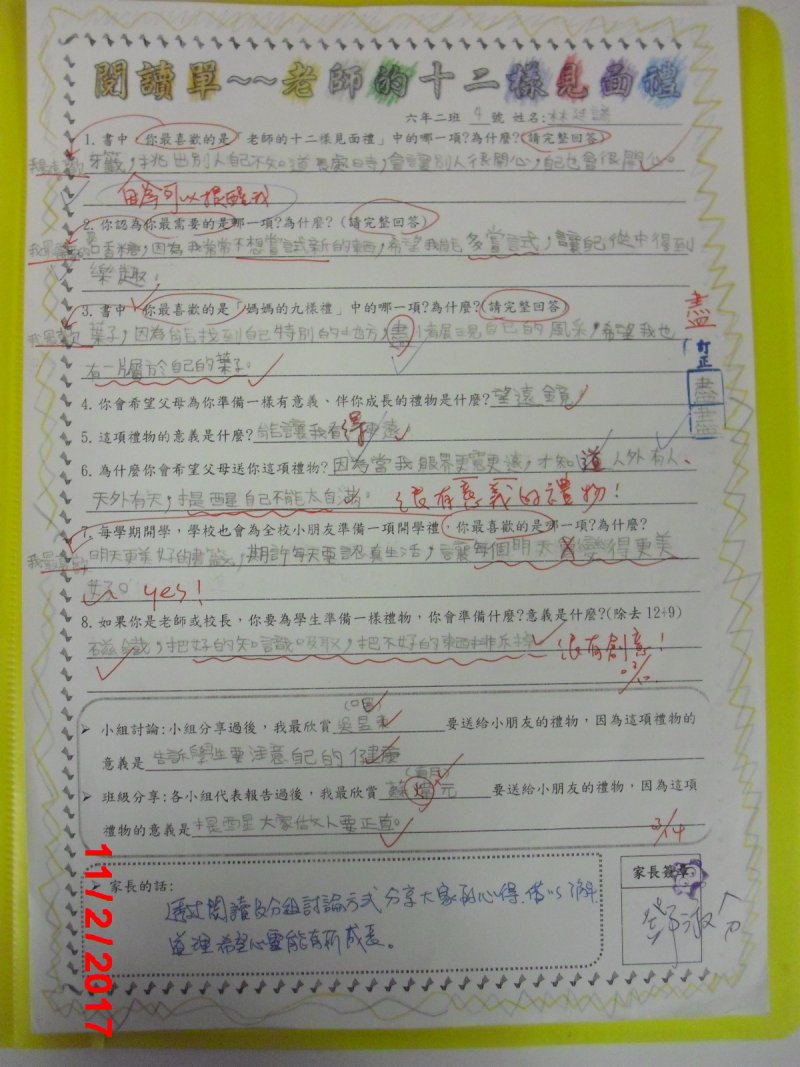 閱讀單~~老師的十二樣見面禮
六年二班 4 號 姓名:林廷謙
1. 書中，你最喜歡的是「老師的十二樣見面禮」中的哪一項?為什麼?(請完整回答)
牙籤，挑出別人自己不知道長處時，會讓別人很開心，自己也會很開心。
因為可以提醒我
2. 你認為你最需要的是哪一項?為什麼?(請完整回答)
我最需要的是口香糖，因為我常常不想嘗試新的東西，希望我能多嘗試，讓自己從中得到
樂趣。
3. 書中，你最喜歡的是「媽媽的九樣禮」中的哪一項?為什麼?(請完整回答)
葉子，因為能找到自己特別的地方，盡情展現自己的風采，希望我也
有一片屬於自己的葉子。
盡
訂正
盡
盡
4. 你會希望父母為你準備一樣有意義、伴你成長的禮物是什麼?望遠鏡
5. 這項禮物的意義是什麼?能讓我看得更遠
6. 為什麼你會希望父母送你這項禮物?因為當我眼界更寬更遠，才知道人外有人、
天外有天，提醒自己不能太自滿。 很有意義的禮物!
7. 每學期開學，學校也會為全校小朋友準備一項開學禮，你最喜歡的是哪一項?為什麼?
明天更美好的書籤，期許每天要認真生活，讓每個明天變得更美
好。 yes!
8. 如果你是老師或校長，你要為學生準備一樣禮物，你會準備什麼?意義是什麼?(除去12+9)
磁鐵，把好的知識吸取，把不好的東西排斥掉 很有創意!
小組討論:小組分享過後，我最欣賞 吳昱 要送給小朋友的禮物，因為這項禮物的
意義是 告訴學生要注意自己的健康
班級分享:各小組代表報告過後，我最欣賞 蘇 元 要送給小朋友的禮物，因為這項
禮物的意義是 提醒大家做人要正直。
3/14
家長的話:
透過閱讀及分組討論方式分享大家的心得，借以了解
道理希望心靈能有所成長。
家長簽章
11/2/2017